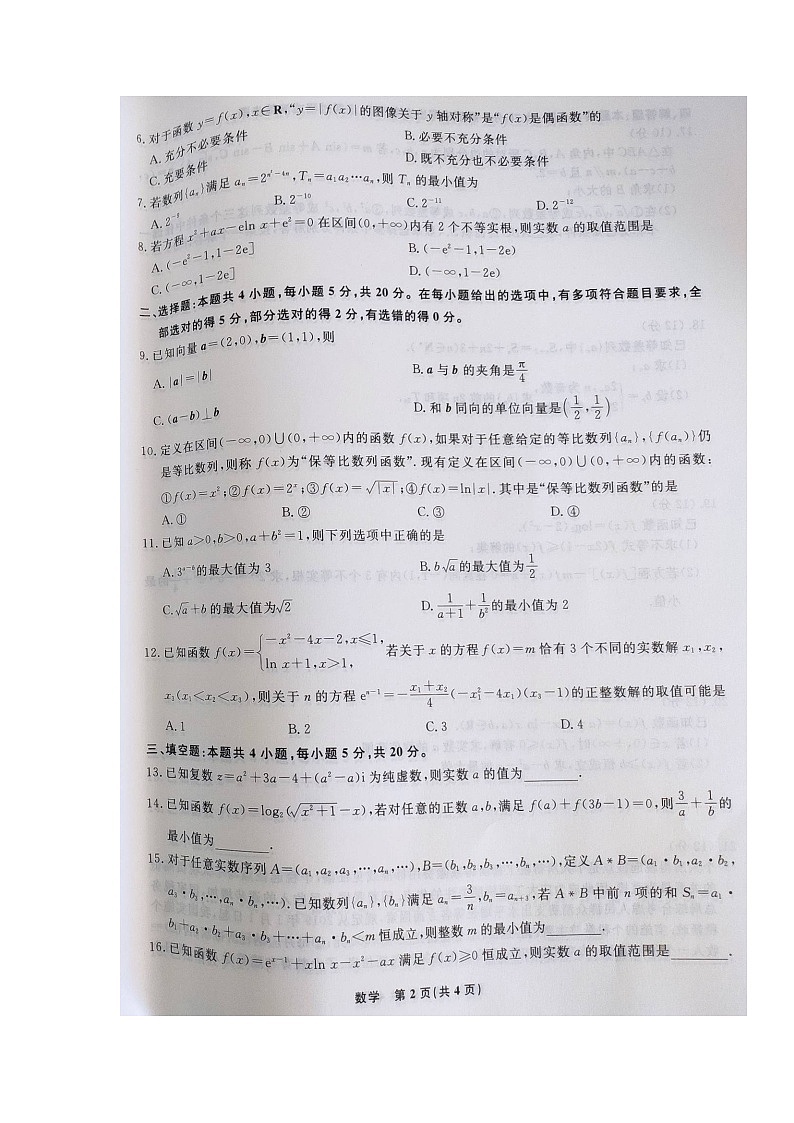 6. 对于函数 y=f(x),x∈R,“y=|f(x)|的图像关于 y 轴对称”是“f(x)是偶函数”的
A. 充分不必要条件 B. 必要不充分条件
C. 充要条件 D. 既不充分也不必要条件
7. 若数列{aₙ}满足 aₙ=2^{n²-4n},Tₙ=a₁a₂…aₙ,则 Tₙ 的最小值为
A. 2⁻⁸ B. 2⁻¹⁰ C. 2⁻¹¹ D. 2⁻¹²
8. 若方程 x²+ax-eln x+e²=0 在区间(0,+∞)内有 2 个不等实根,则实数 a 的取值范围是
A. (-e²-1,1-2e] B. (-e²-1,1-2e)
C. (-∞,1-2e] D. (-∞,1-2e)
二、选择题:本题共 4 小题,每小题 5 分,共 20 分。在每小题给出的选项中,有多项符合题目要求,全
部选对的得 5 分,部分选对的得 2 分,有选错的得 0 分。
9. 已知向量 a=(2,0),b=(1,1),则
A. |a|=|b| B. a 与 b 的夹角是 π/4
C. (a-b)⊥b D. 和 b 同向的单位向量是(1/2,1/2)
10. 定义在区间(-∞,0)∪(0,+∞)内的函数 f(x),如果对于任意给定的等比数列{aₙ},{f(aₙ)}仍
是等比数列,则称 f(x)为“保等比数列函数”. 现有定义在区间(-∞,0)∪(0,+∞)内的函数:
①f(x)=x²;②f(x)=2ˣ;③f(x)=√|x|;④f(x)=ln|x|. 其中是“保等比数列函数”的是
A. ① B. ② C. ③ D. ④
11. 已知 a>0,b>0,a+b²=1,则下列选项中正确的是
A. 3^{a-b}的最大值为 3 B. b√a的最大值为1/2
C. √a+b 的最大值为√2 D. 1/(a+1)+1/b² 的最小值为 2
12. 已知函数 f(x)={-x²-4x-2,x≤1, ln x+1,x>1, 若关于 x 的方程 f(x)=m 恰有 3 个不同的实数解 x₁,x₂,
x₃(x₁<x₂<x₃),则关于 n 的方程 eⁿ⁻¹=-(x₁+x₂)/4(-x₁²-4x₁)(x₃-1)的正整数解的取值可能是
A. 1 B. 2 C. 3 D. 4
三、填空题:本题共 4 小题,每小题 5 分,共 20 分。
13. 已知复数 z=a²+3a-4+(a²-a)i 为纯虚数,则实数 a 的值为________.
14. 已知函数 f(x)=log₂(√(x²+1)-x),若对任意的正数 a,b,满足 f(a)+f(3b-1)=0,则3/a+1/b的
最小值为________.
15. 对于任意实数序列 A=(a₁,a₂,a₃,…,aₙ,…),B=(b₁,b₂,b₃,…,bₙ,…),定义 A*B=(a₁·b₁,a₂·b₂,
a₃·b₃,…,aₙ·bₙ,…). 已知数列{aₙ},{bₙ}满足 aₙ=3/n,bₙ=aₙ₊₃,若 A*B 中前 n 项的和 Sₙ=a₁·
b₁+a₂·b₂+a₃·b₃+…+aₙ·bₙ<m 恒成立,则整数 m 的最小值为________.
16. 已知函数 f(x)=eˣ⁻¹+xln x-x²-ax 满足 f(x)≥0 恒成立,则实数 a 的取值范围是________.
数学 第 2 页(共 4 页)